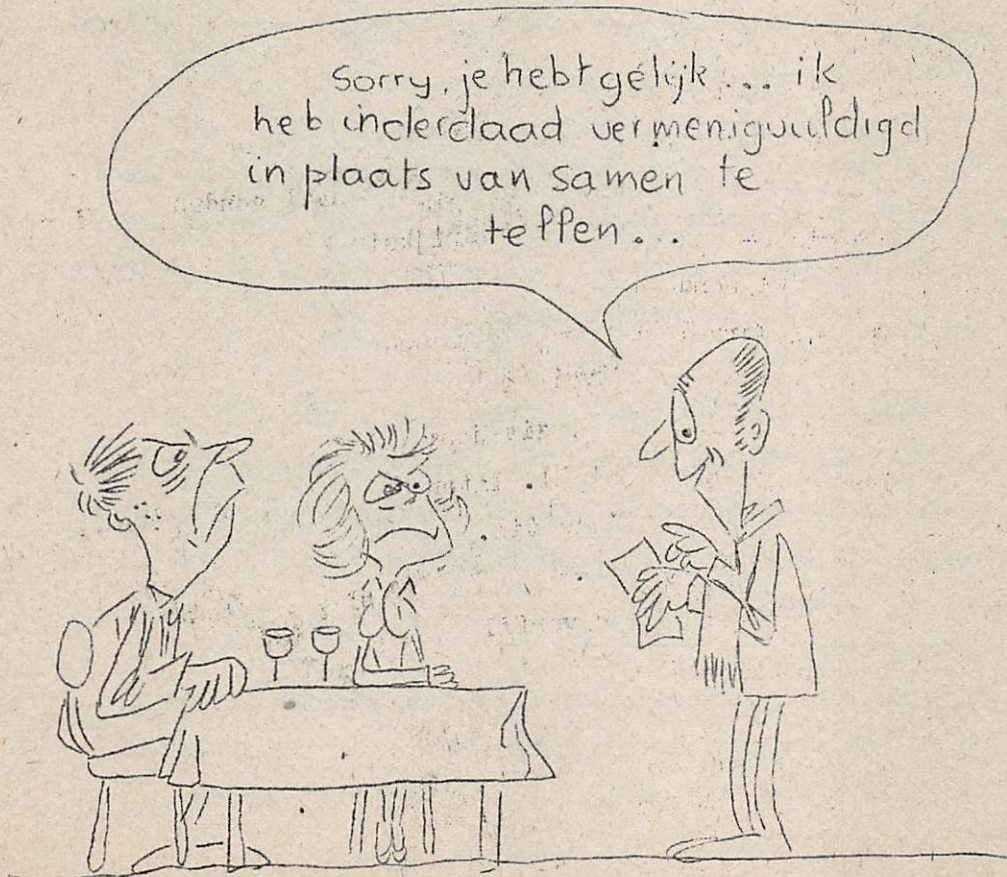 Sorry, je hebt gelijk ... ik
heb inderdaad vermenigvuldigd
in plaats van samen te
tellen...